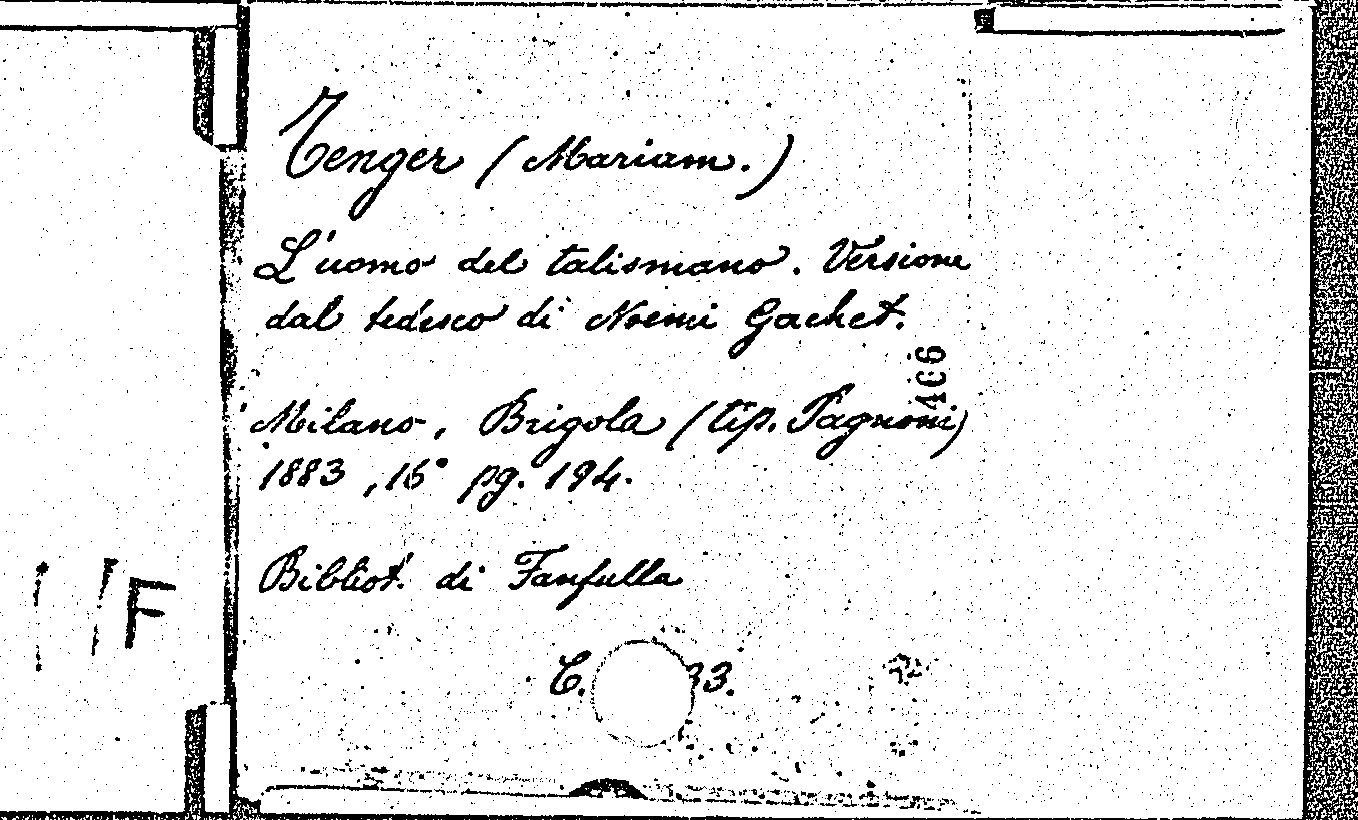 Tenger (Mariam.)
L'uomo del talismano. Versione
dal tedesco di Noemi Gachet.
406
Milano, Brigola (tip. Pagnoni)
1883, 16° pg. 194.
Bibliot. di Fanfulla
C. 33.
F